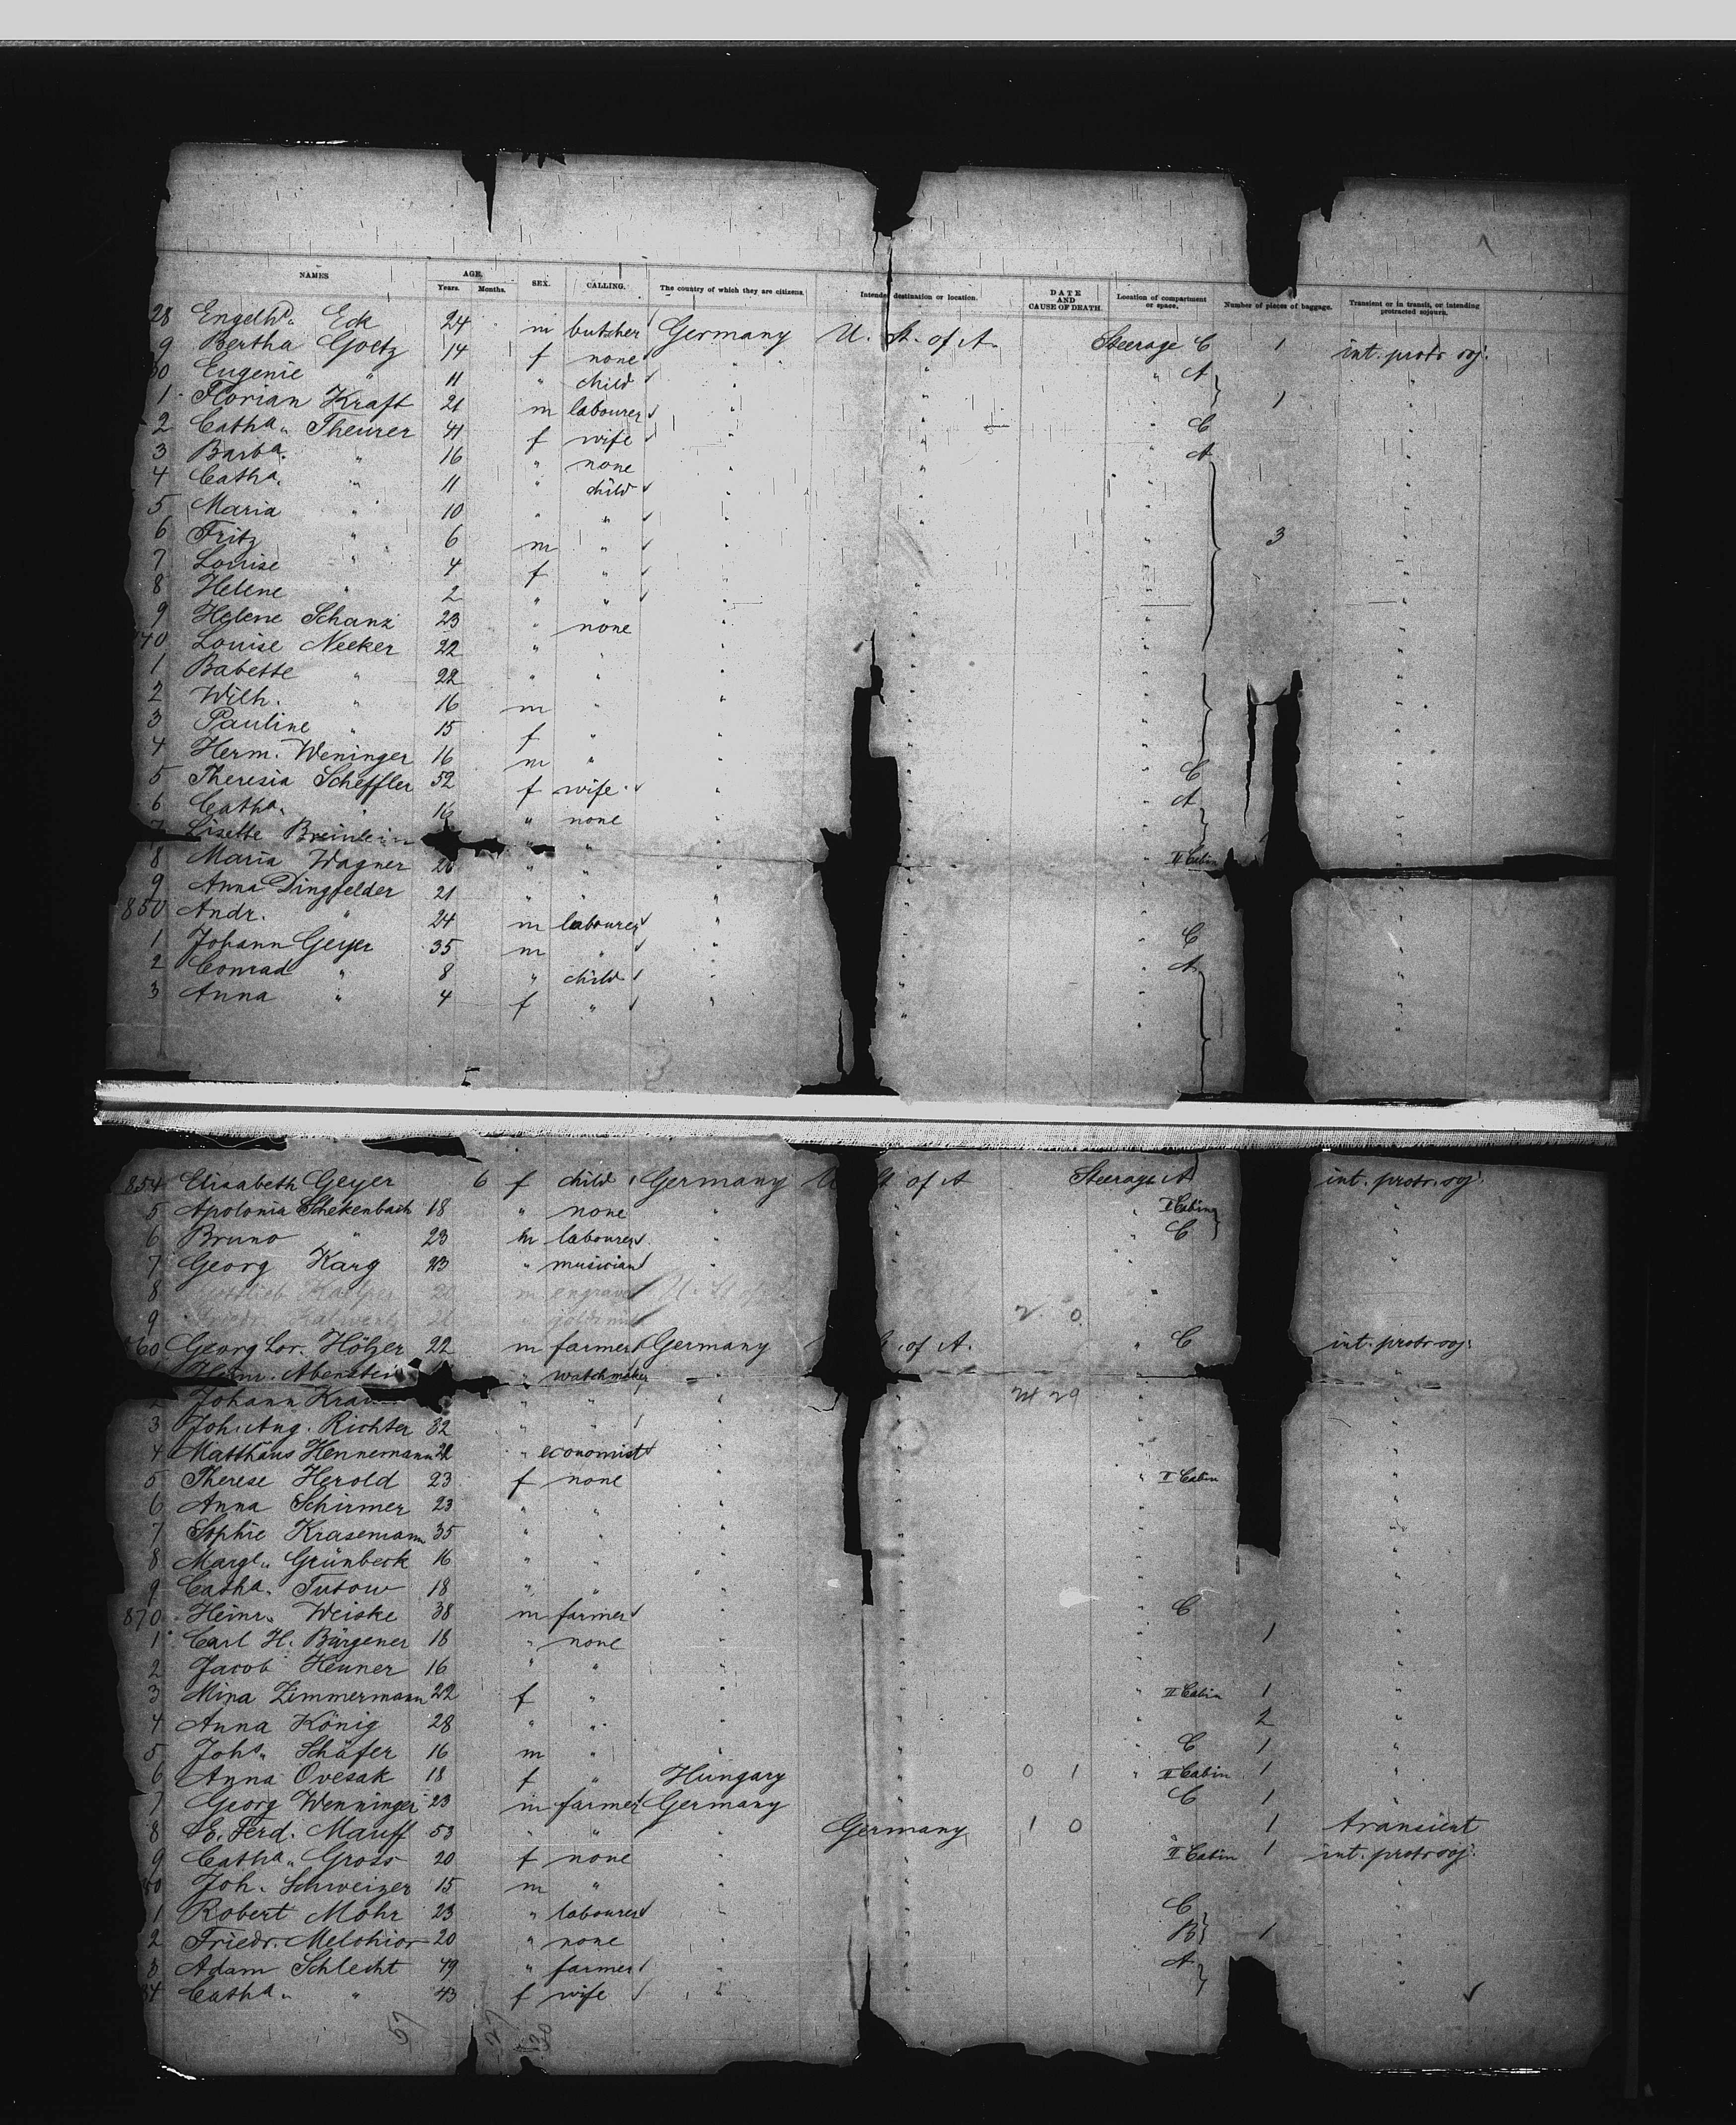 NAMES AGE. Years. Months. SEX. CALLING. The country of which they are citizens. Intended destination or location. DATE AND CAUSE OF DEATH. Location of compartment or space. Number of pieces of baggage. Transient or in transit, or intending protracted sojourn.
28 Engelhd. Eck 24 m butcher Germany U. St. of A. Steerage C 1 int. protr. soj.
9 Bertha Goetz 14 f none " " " A "
30 Eugenie " 11 " child " " " 1 "
1 Florian Kraft 21 m labourer " " " C "
2 Catha. Theurer 41 f wife " " " A "
3 Barba. " 16 " none " " " "
4 Catha. " 11 " child " " " "
5 Maria " 10 " " " " " "
6 Fritz " 6 m " " " " 3 "
7 Louise " 4 f " " " " "
8 Helene " 2 " " " " " "
9 Helene Schanz 23 " none " " " "
840 Louise Necker 22 " " " " " "
1 Babette " 22 " " " " " "
2 Wilh. " 16 m " " " " "
3 Pauline " 15 f " " " " "
4 Herm. Weninger 16 m " " " " C "
5 Theresia Scheffler 52 f wife " " " A "
6 Catha. " 16 " none " " " "
7 Lisette Breinlein " " " " " II Cabin "
8 Maria Wagner 26 " " " " " "
9 Anna Dingfelder 21 " " " " " "
850 Andr. " 24 m labourer " " " C "
1 Johann Geyer 35 m " " " " A "
2 Conrad " 8 " child " " " "
3 Anna " 4 f " " " " "
854 Elisabeth Geyer 6 f child Germany U. St. of A Steerage A int. protr. soj.
5 Apolonia Schekenbach 18 " none " " " II Cabin "
6 Bruno " 23 m labourer " " " C "
7 Georg Karg 23 " musician " " " "
8 m engraver U. St. of
9 2 0
860 Georg Lor. Hölzer 22 m farmer Germany of A. " C int. protr. soj.
Heinr. Abenstein " watchmaker " " "
2 Johann " " " " 24 29 "
3 Joh. Aug. Richter 32 " " " " "
4 Matthäus Hennemann " economist " " "
5 Therese Herold 23 f none " " " II Cabin "
6 Anna Schirmer 23 " " " " " "
7 Sophie Krasemann 35 " " " " " "
8 Margt. Grünbeck 16 " " " " " "
9 Catha. Tutow 18 " " " " " "
870 Heinr. Weiske 38 m farmer " " " C "
1 Carl H. Bürgener 18 " none " " " 1 "
2 Jacob Heuner 16 " " " " " "
3 Mina Zimmermann 22 f " " " " II Cabin 1 "
4 Anna König 28 " " " " " 2 "
5 Johs. Schäfer 16 m " " " " C 1 "
6 Anna Ovesak 18 f " Hungary " 0 1 " II Cabin 1 "
7 Georg Wenninger 23 m farmer Germany " C 1 "
8 E. Ferd. Mauff 53 " " " Germany 1 0 1 transient
9 Catha. Gross 20 f none " " " II Cabin 1 int. protr. soj.
80 Joh. Schweizer 15 m " " " "
1 Robert Mohr 23 " labourer " " C "
2 Friedr. Melchior 20 " none " " B 1 "
3 Adam Schlecht 49 " farmer " " A "
84 Catha. " 43 f wife " " "
57 27 30